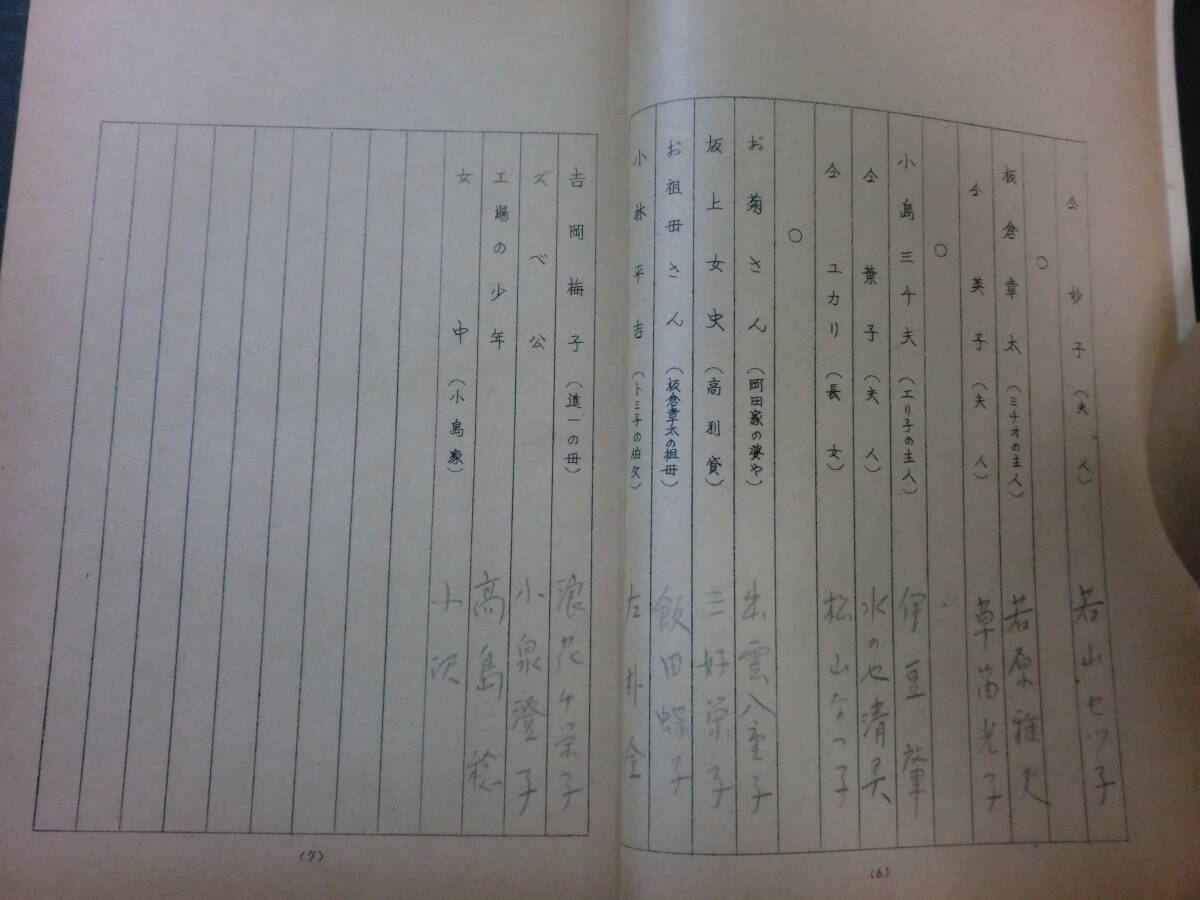 仝 妙子(夫人) 若山セツ子
○
板倉章太(ミチオの主人) 若原雅夫
仝 美子(夫人) 草笛光子
○
小島三千夫(エリ子の主人) 伊豆肇
仝 葉子(夫人) 水の也清美
仝 ユカリ(長女) 松山なつ子
○
お菊さん(岡田家の婆や) 出雲八重子
坂上女史(高利貸) 三好栄子
お祖母さん(板倉章太の祖母) 飯田蝶子
小林平吉(トミ子の伯父) 左卜全
(6)
吉岡梅子(進一の母) 浪花千栄子
ズベ公 小泉澄子
工場の少年 高島稔
女中(小島家) 小沢
(7)